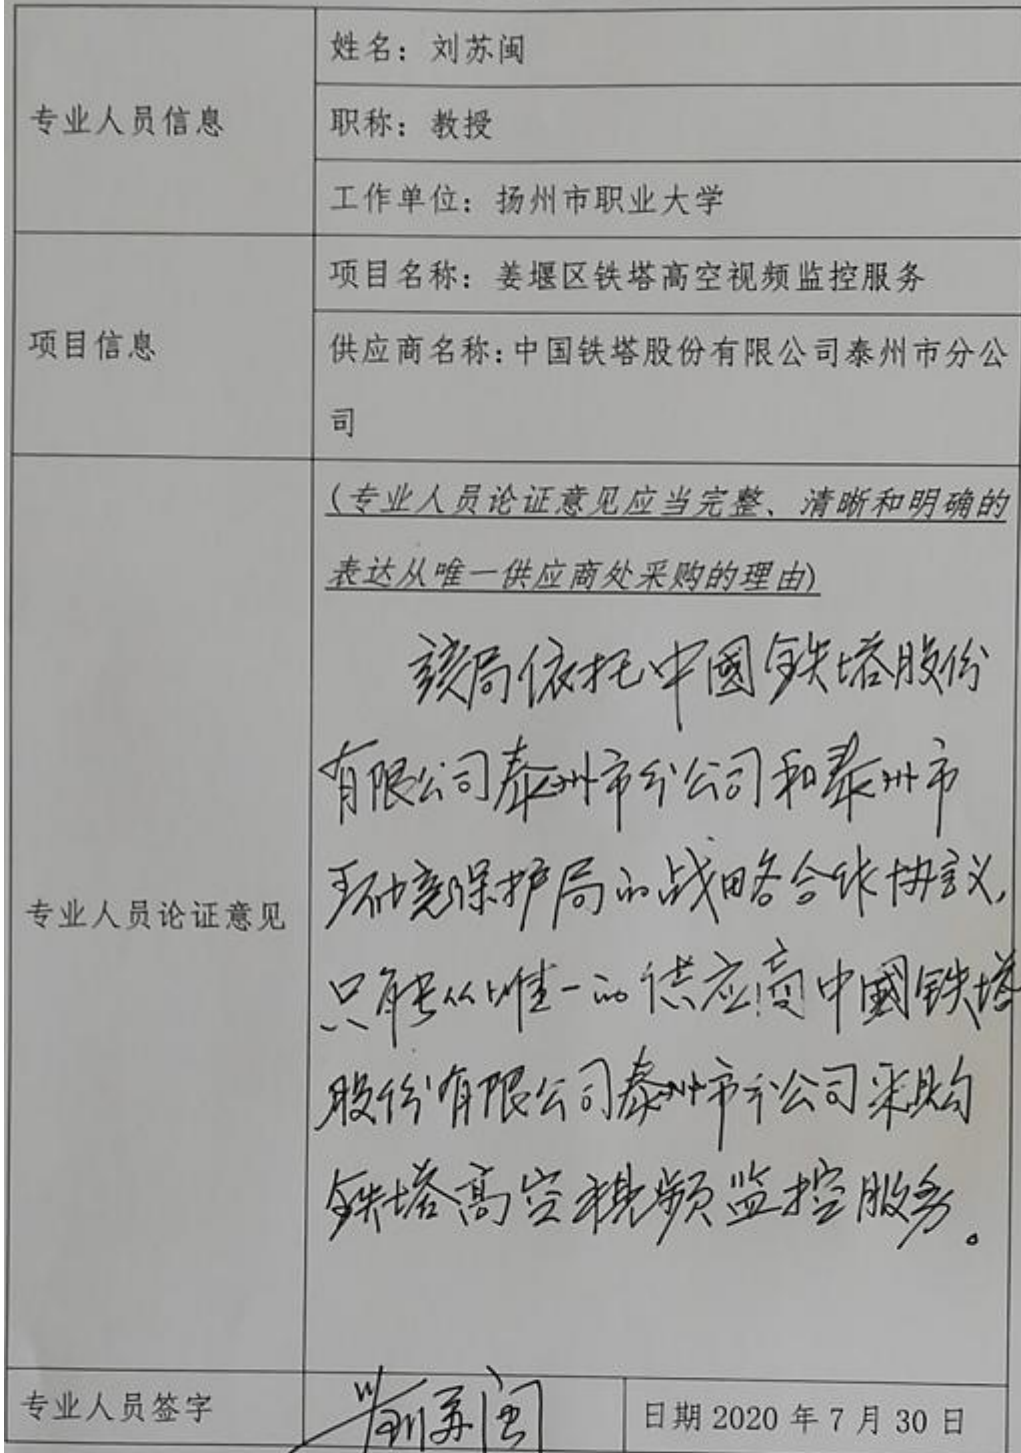 专业人员信息
姓名：刘苏闽
职称：教授
工作单位：扬州市职业大学
项目信息
项目名称：姜堰区铁塔高空视频监控服务
供应商名称:中国铁塔股份有限公司泰州市分公
司
专业人员论证意见
(专业人员论证意见应当完整、清晰和明确的
表达从唯一供应商处采购的理由)
该局依托中國铁塔股份
有限公司泰州市分公司和泰州市
环境保护局的战略合作协议,
只能从唯一的供应商中國铁塔
股份有限公司泰州市分公司采购
铁塔高空视频监控服务。
专业人员签字
刘苏闽
日期 2020 年 7 月 30 日